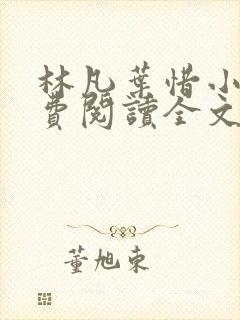 林凡葉惜小
費閱讀全文
董旭東